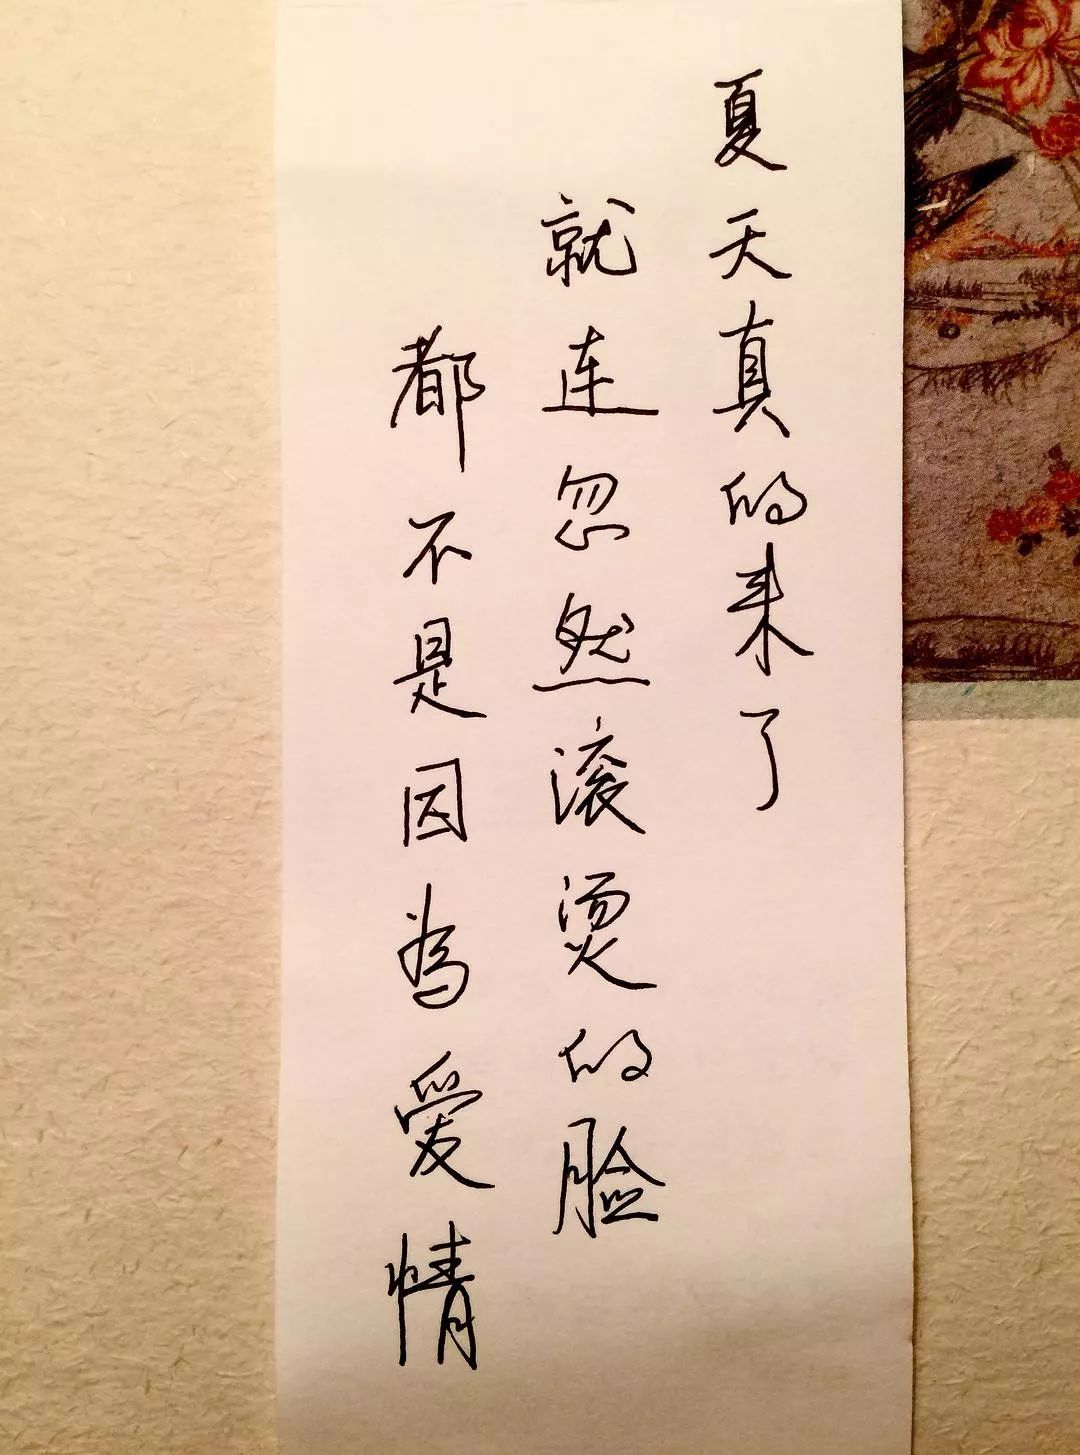 夏天真的来了
就连忽然滚烫的脸
都不是因為爱情